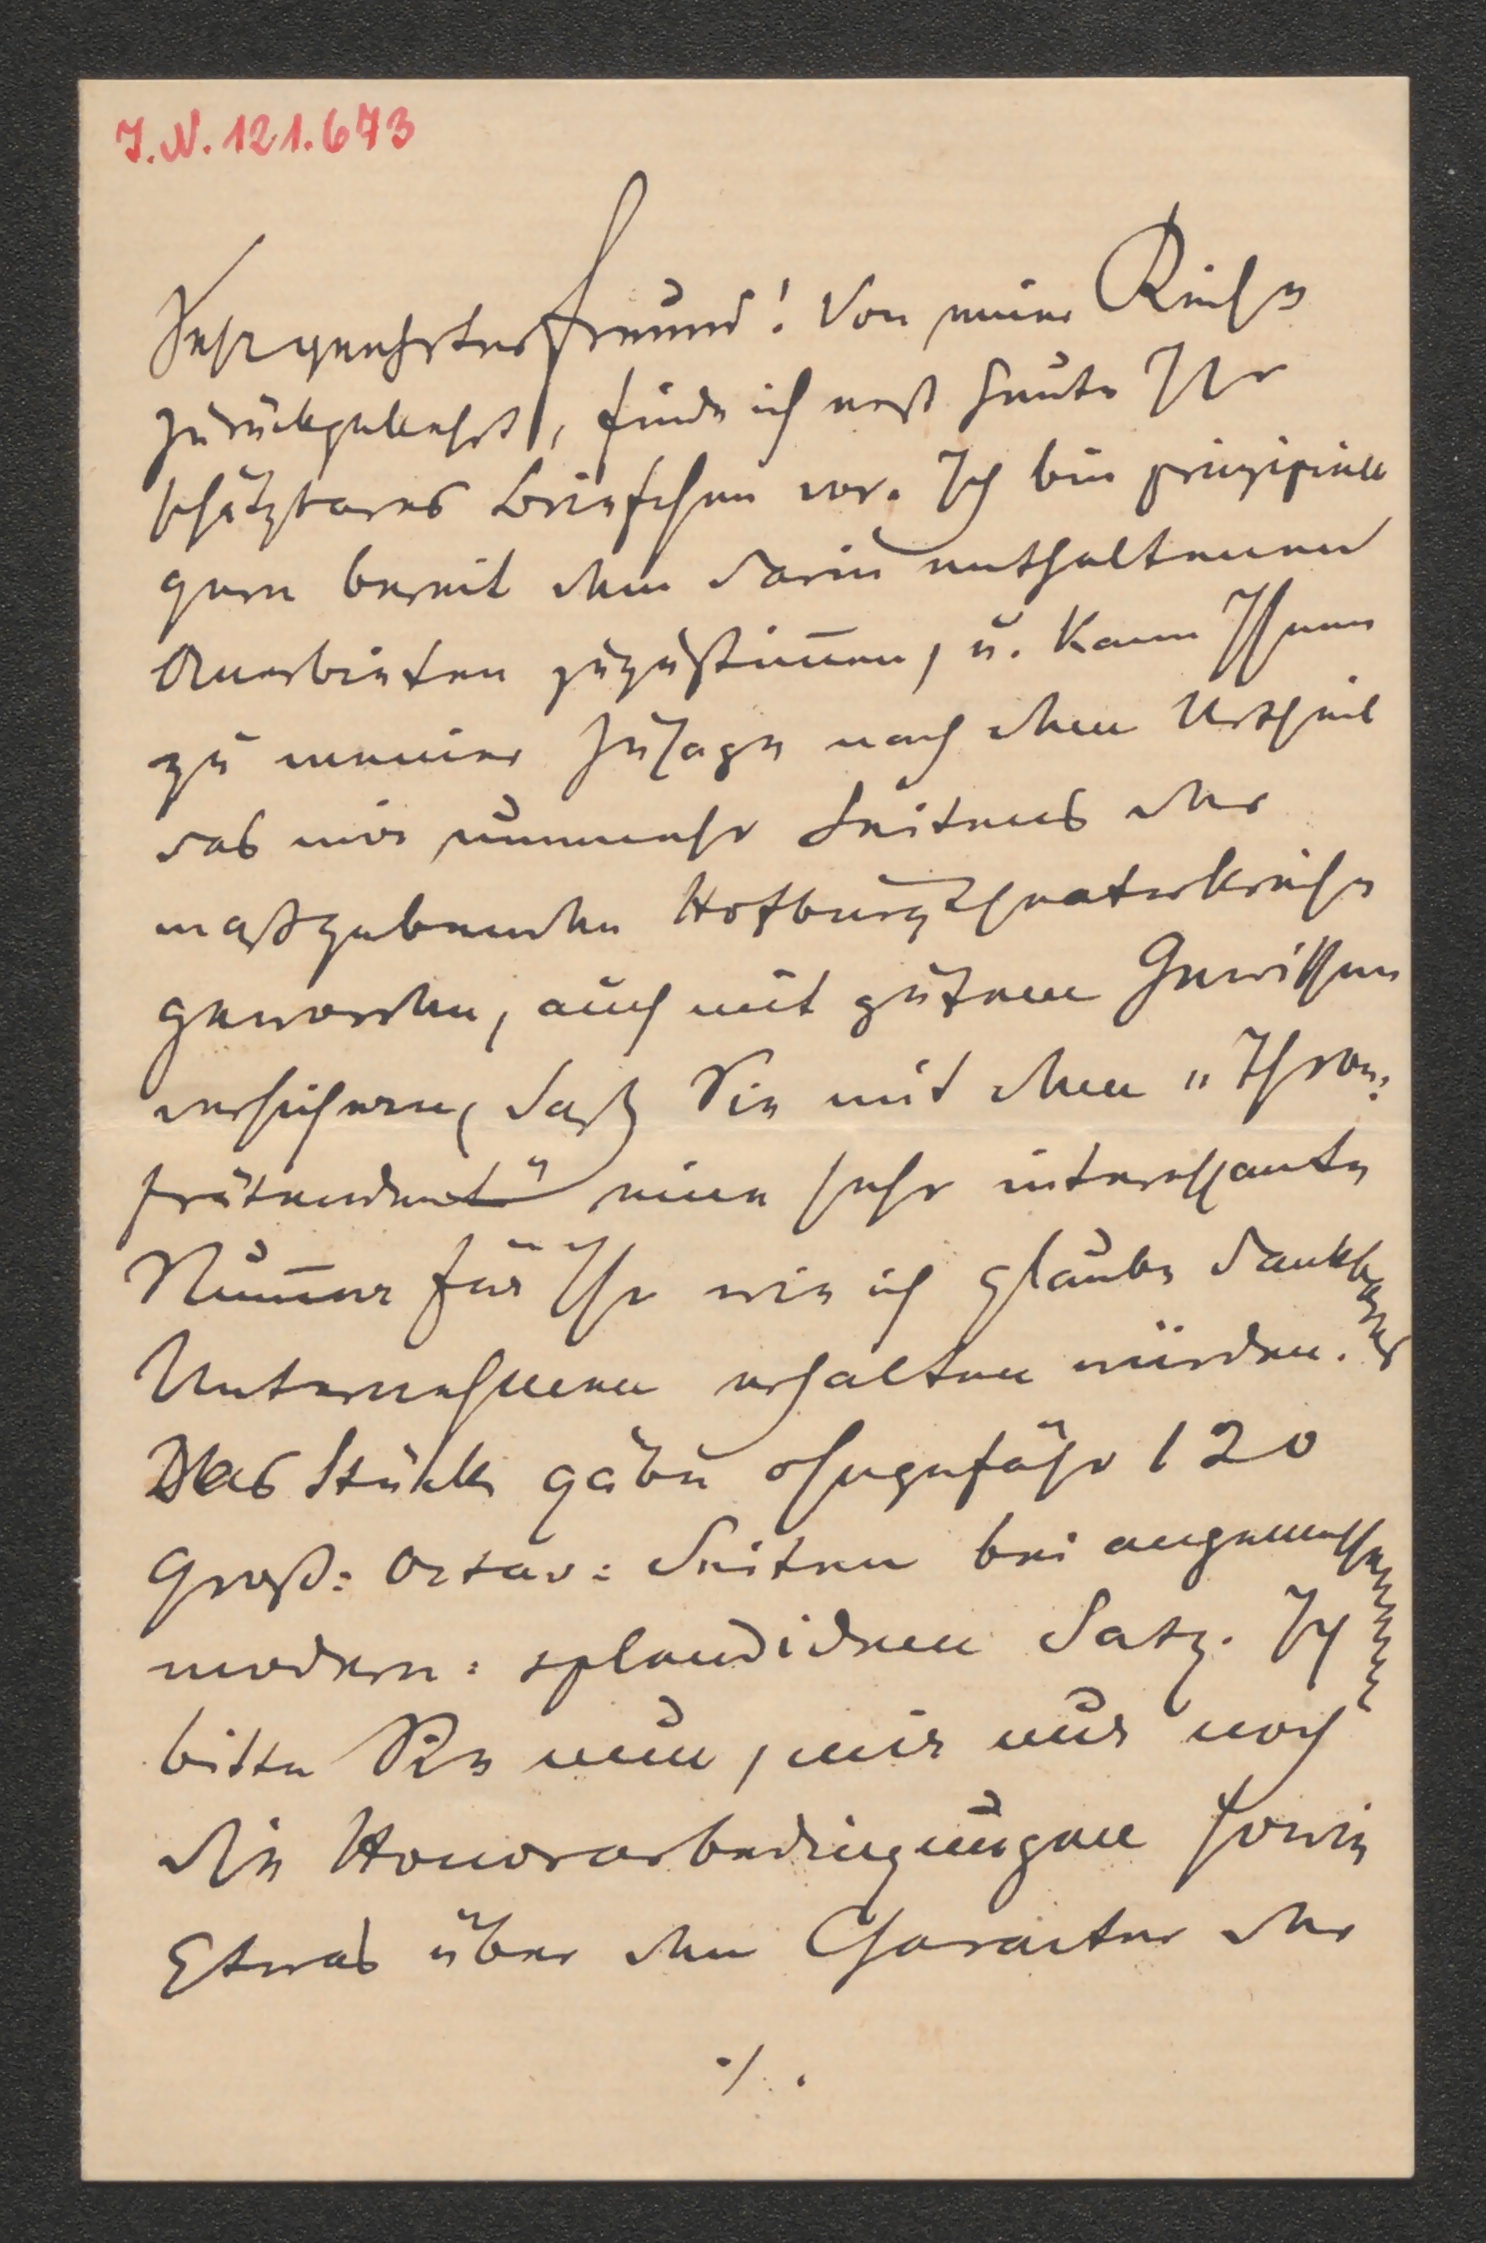 I.N. 121.673
Sehr geehrter Freund! Von meiner Reise
zurückgekehrt, finde ich erst heute Ihr
schätzbares Briefchen vor. Ich bin prinzipiell
gern bereit dem darin enthaltenen
Anerbieten zuzustim̄en, u. kann Ihnen
zu meiner Zusage nach dem Urtheil
das mir nunmehr Seitens der
maßgebenden Hofburgtheaterkreise
geworden, auch mit gutem Gewissen
versichern, daß Sie mit dem „Thron:
prätendent" eine sehr interessante
Num̄er für Ihr wie ich glaube dankbares
Unternehmen erhalten würden.
Das Stück gäbe ohngefähr 120
Groß: Octav: Seiten bei angemessenem
modern: splendidem Satz. Ich
bitte Sie nun, mir nur noch
die Honorarbedingungen sowie
Etwas über den Charakter der
./.